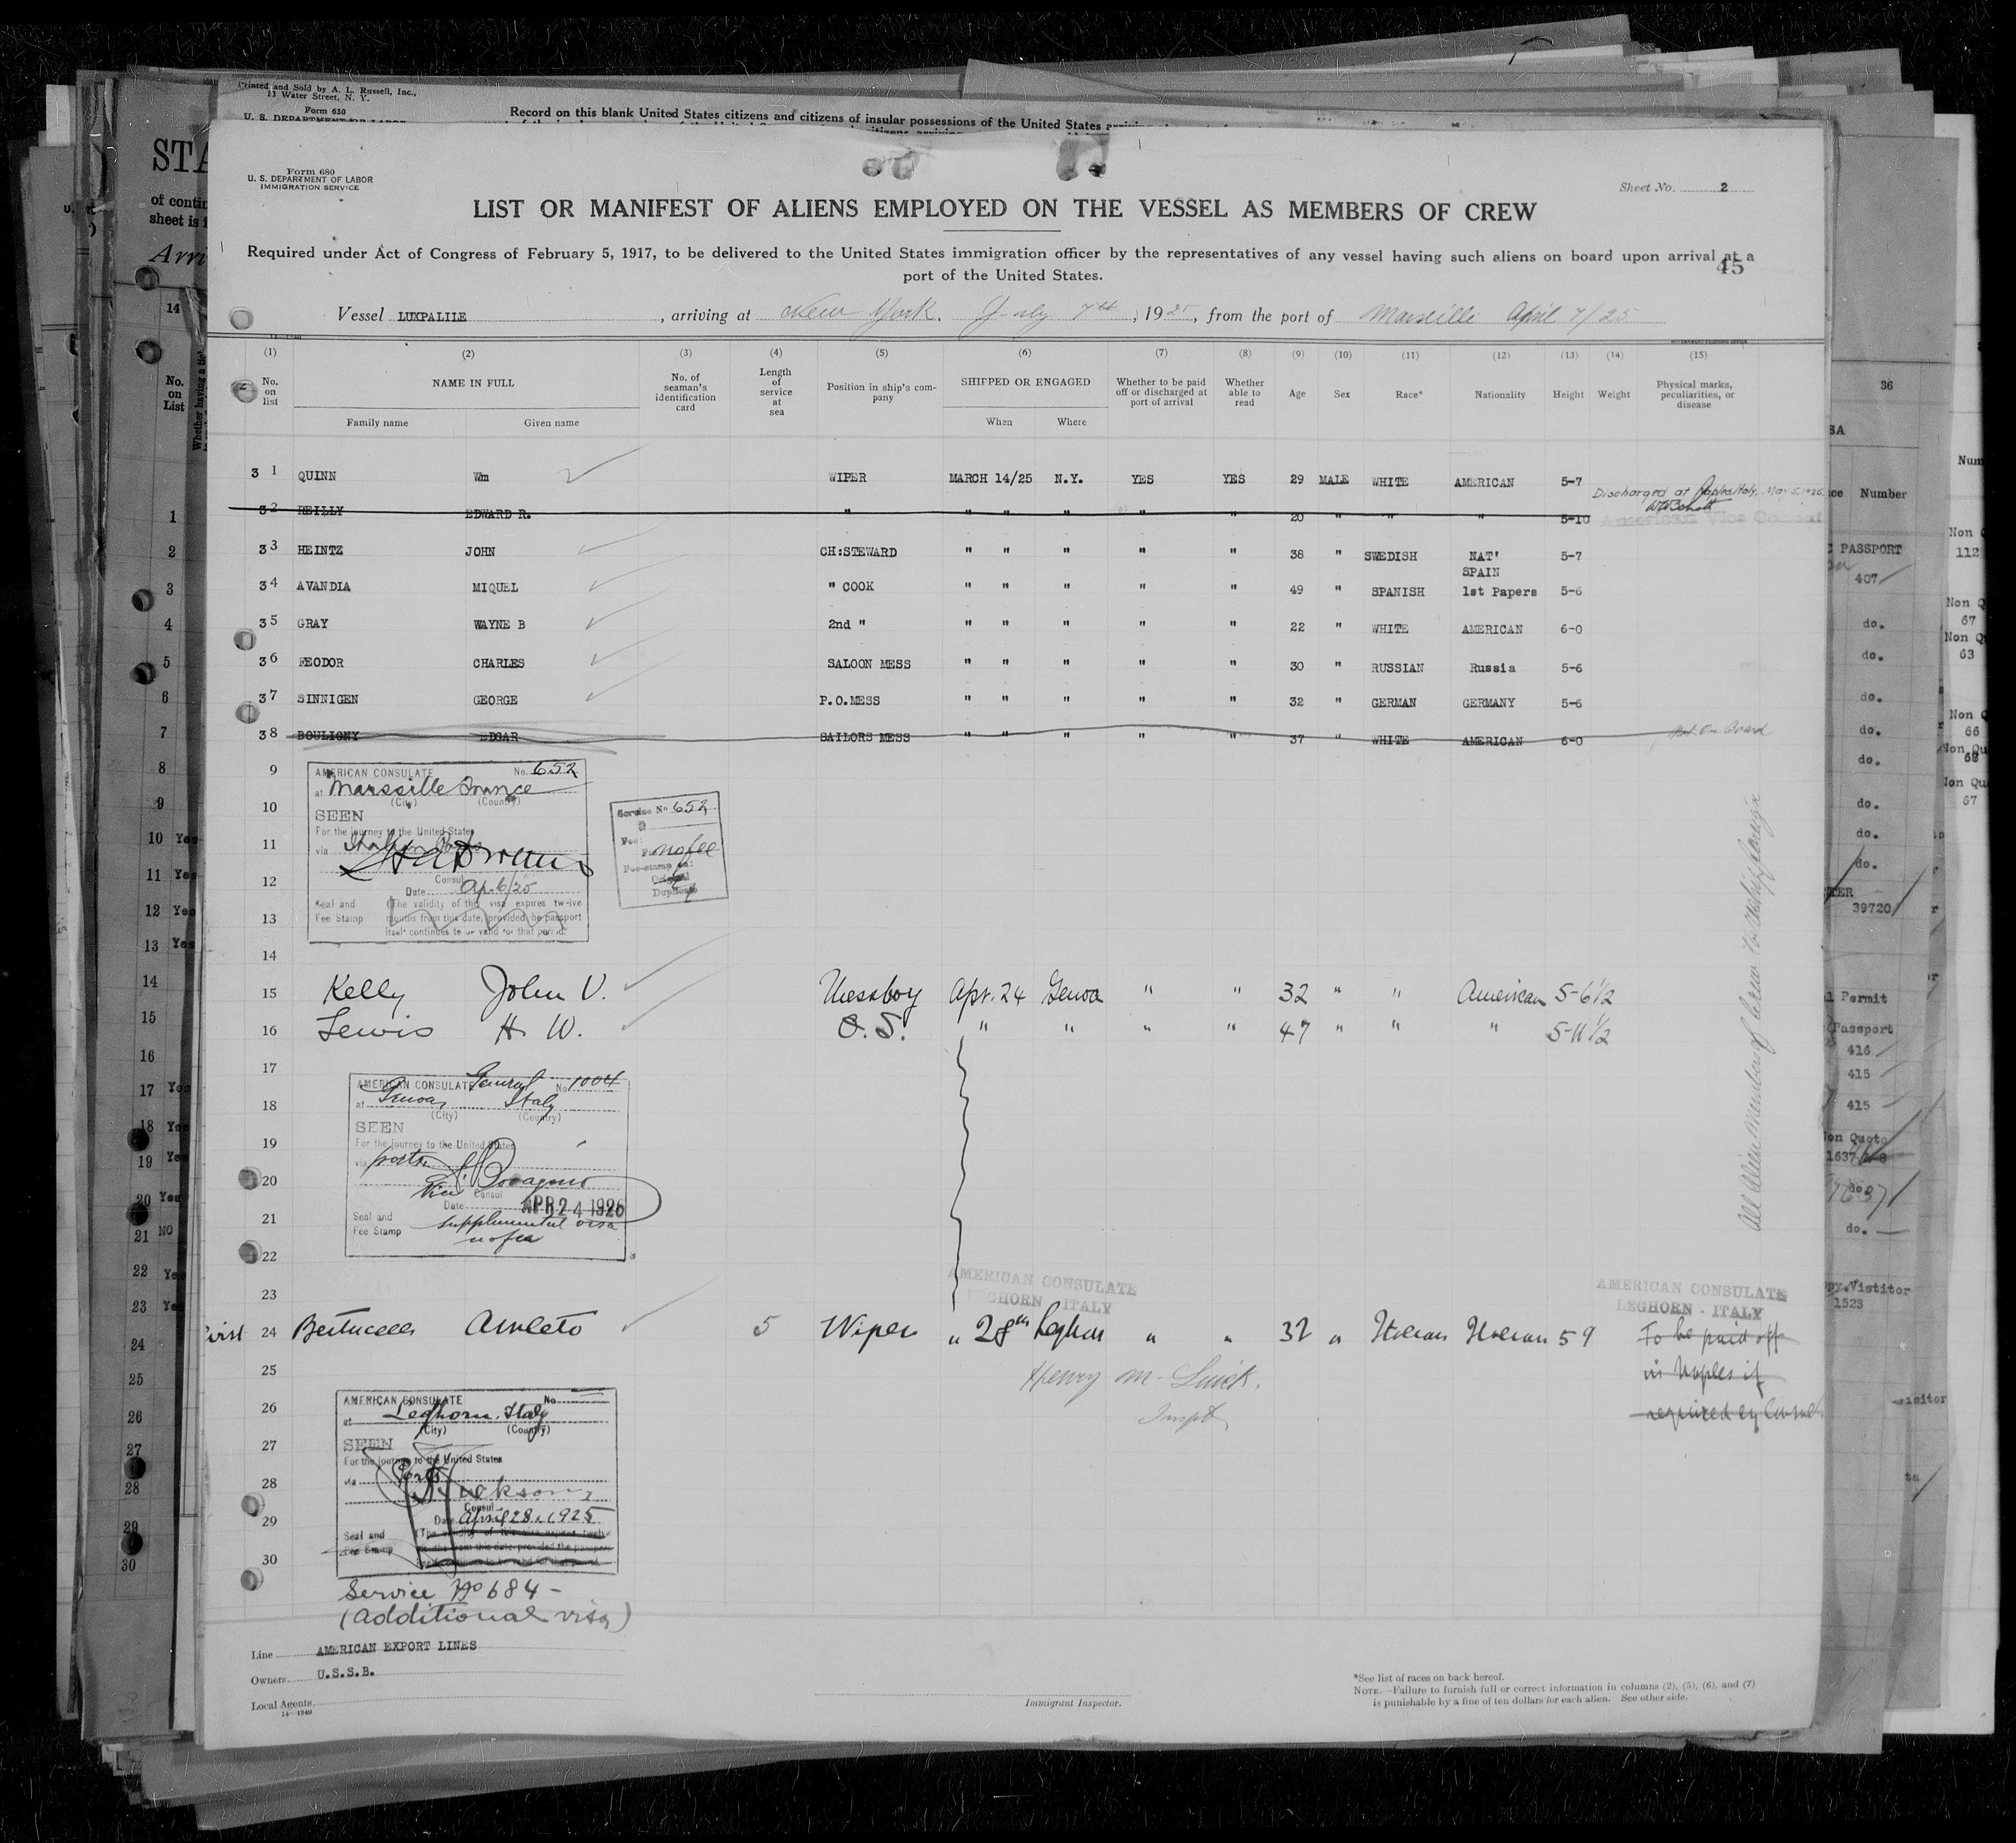 Printed and Sold by A. L. Russell, Inc.,
11 Water Street, N. Y.
Form 630
U. S. DEPARTMENT OF LABOR
Record on this blank United States citizens and citizens of insular possessions of the United States
Form 680
U. S. DEPARTMENT OF LABOR
IMMIGRATION SERVICE
Sheet No. 2
LIST OR MANIFEST OF ALIENS EMPLOYED ON THE VESSEL AS MEMBERS OF CREW
Required under Act of Congress of February 5, 1917, to be delivered to the United States immigration officer by the representatives of any vessel having such aliens on board upon arrival at a
port of the United States.
45
Vessel LUXPALILE, arriving at New York. July 7th, 1925, from the port of Marseille April 7/25
(1) (2) (3) (4) (5) (6) (7) (8) (9) (10) (11) (12) (13) (14) (15)
No. on list
NAME IN FULL
Family name Given name
No. of seaman's identification card
Length of service at sea
Position in ship's company
SHIPPED OR ENGAGED
When Where
Whether to be paid off or discharged at port of arrival
Whether able to read
Age Sex Race* Nationality Height Weight
Physical marks, peculiarities, or disease
3 1 QUINN Wm WIPER MARCH 14/25 N.Y. YES YES 29 MALE WHITE AMERICAN 5-7
Discharged at Naples, Italy, May 5, 1925
3 2 REILLY EDWARD R. " " " " " " 20 " " " 5-10 American Vice Consul
3 3 HEINTZ JOHN CH:STEWARD " " " " " 38 " SWEDISH NAT' 5-7
SPAIN
3 4 AVANDIA MIQUEL " COOK " " " " " 49 " SPANISH 1st Papers 5-6
3 5 GRAY WAYNE B 2nd " " " " " " 22 " WHITE AMERICAN 6-0
3 6 FEODOR CHARLES SALOON MESS " " " " " 30 " RUSSIAN Russia 5-6
3 7 SINNIGEN GEORGE P.O.MESS " " " " " 32 " GERMAN GERMANY 5-6
3 8 BOULIGNY EDGAR SAILORS MESS " " " " " 37 " WHITE AMERICAN 6-0 Not On Board
9
AMERICAN CONSULATE No. 652
at Marseille France
(City) (Country)
10
SEEN
For the journey to the United States
11
via Italian Ports
12
Consul
Date Ap. 6/25
Seal and Fee Stamp
(The validity of this visa expires twelve
13
months from this date, provided the passport
itself continues to be valid for that period.
Service No 652
Fee:
no fee
Fee-stamp on:
Original
Duplicate
14
15 Kelly John V. Messboy Apr. 24 Genoa " " 32 " " American 5-6 1/2
16 Lewis H. W. O. S. " " " " 47 " " " 5-11 1/2
17
AMERICAN CONSULATE General No. 1004
18
at Genoa Italy
(City) (Country)
SEEN
19
For the journey to the United States
via ports
20
Vice Consul
Date APR 24 1925
21
Seal and Fee Stamp
supplemental visa
no fee
22
23
AMERICAN CONSULATE
LEGHORN - ITALY
AMERICAN CONSULATE
LEGHORN - ITALY
24 Bertucelli Amleto 5 Wiper " 28th Leghorn " " 32 " Italian Italian 5 9 To be paid off
25
in Naples if
required by Consul
Henry M. Quick.
Inspt
26
AMERICAN CONSULATE No
at Leghorn, Italy
(City) (Country)
27
SEEN
For the journey to the United States
28
via Ports
29
Consul
Date April 28, 1925
Seal and Fee Stamp
(The validity of this visa expires twelve
months from this date, provided the passport
30
Service No 684 -
(additional visa)
All Alien members of crew to reship foreign
Line AMERICAN EXPORT LINES
Owners U.S.S.B.
Local Agents
14-1240
Immigrant Inspector.
*See list of races on back hereof.
NOTE.—Failure to furnish full or correct information in columns (2), (5), (6), and (7)
is punishable by a fine of ten dollars for each alien. See other side.